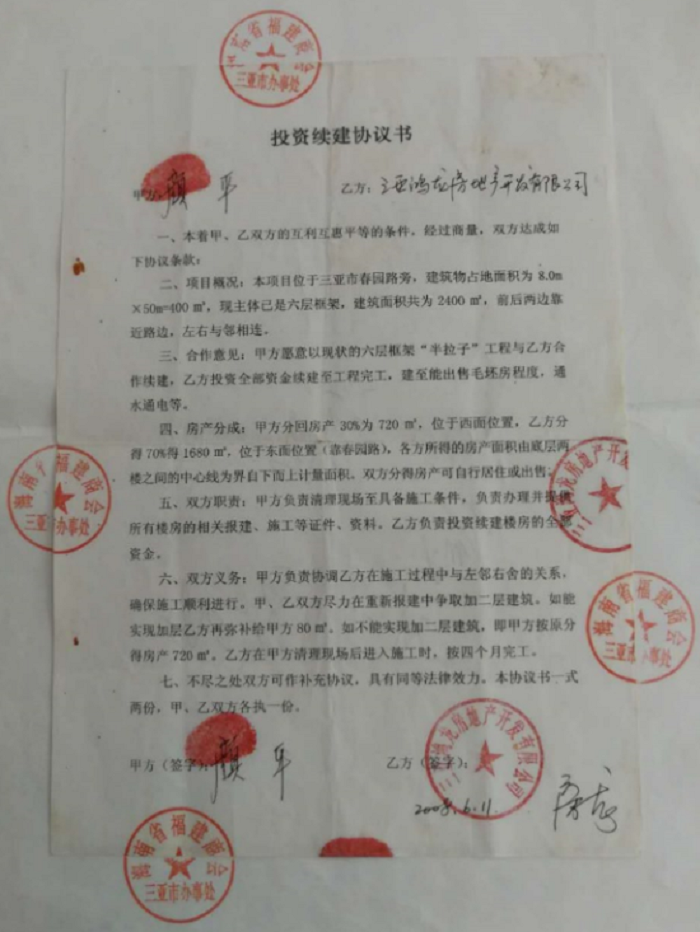 海南省福建商会
三亚市办事处
投资续建协议书
甲方：颜平 乙方：三亚鸿龙房地产开发有限公司
一、本着甲、乙双方的互利互惠平等的条件，经过商量，双方达成如
下协议条款：
二、项目概况：本项目位于三亚市春园路旁，建筑物占地面积为 8.0m
×50m=400 ㎡，现主体已是六层框架，建筑面积共为 2400 ㎡，前后两边靠
近路边，左右与邻相连。
三、合作意见：甲方愿意以现状的六层框架“半拉子”工程与乙方合
作续建，乙方投资全部资金续建至工程完工，建至能出售毛坯房程度，通
水通电等。
四、房产分成：甲方分回房产 30%为 720 ㎡，位于西面位置，乙方分
得 70%得 1680 ㎡，位于东面位置（靠春园路），各方所得的房产面积由底层两
楼之间的中心线为界自下而上计量面积。双方分得房产可自行居住或出售。
五、双方职责：甲方负责清理现场至具备施工条件，负责办理并提供
所有楼房的相关报建、施工等证件、资料。乙方负责投资续建楼房的全部
资金。
六、双方义务：甲方负责协调乙方在施工过程中与左邻右舍的关系，
确保施工顺利进行。甲、乙双方尽力在重新报建中争取加二层建筑。如能
实现加层乙方再弥补给甲方 80 ㎡。如不能实现加二层建筑，即甲方按原分
得房产 720 ㎡。乙方在甲方清理现场后进入施工时，按四个月完工。
七、不尽之处双方可作补充协议，具有同等法律效力。本协议书一式
两份，甲、乙双方各执一份。
海南省福建商会
三亚市办事处
龙房地产开发
海南省福建商会
三亚市办事处
甲方（签字）：颜平 乙方（签字）：
龙房地产开发有限公司
2008.6.11
海南省福建商会
三亚市办事处